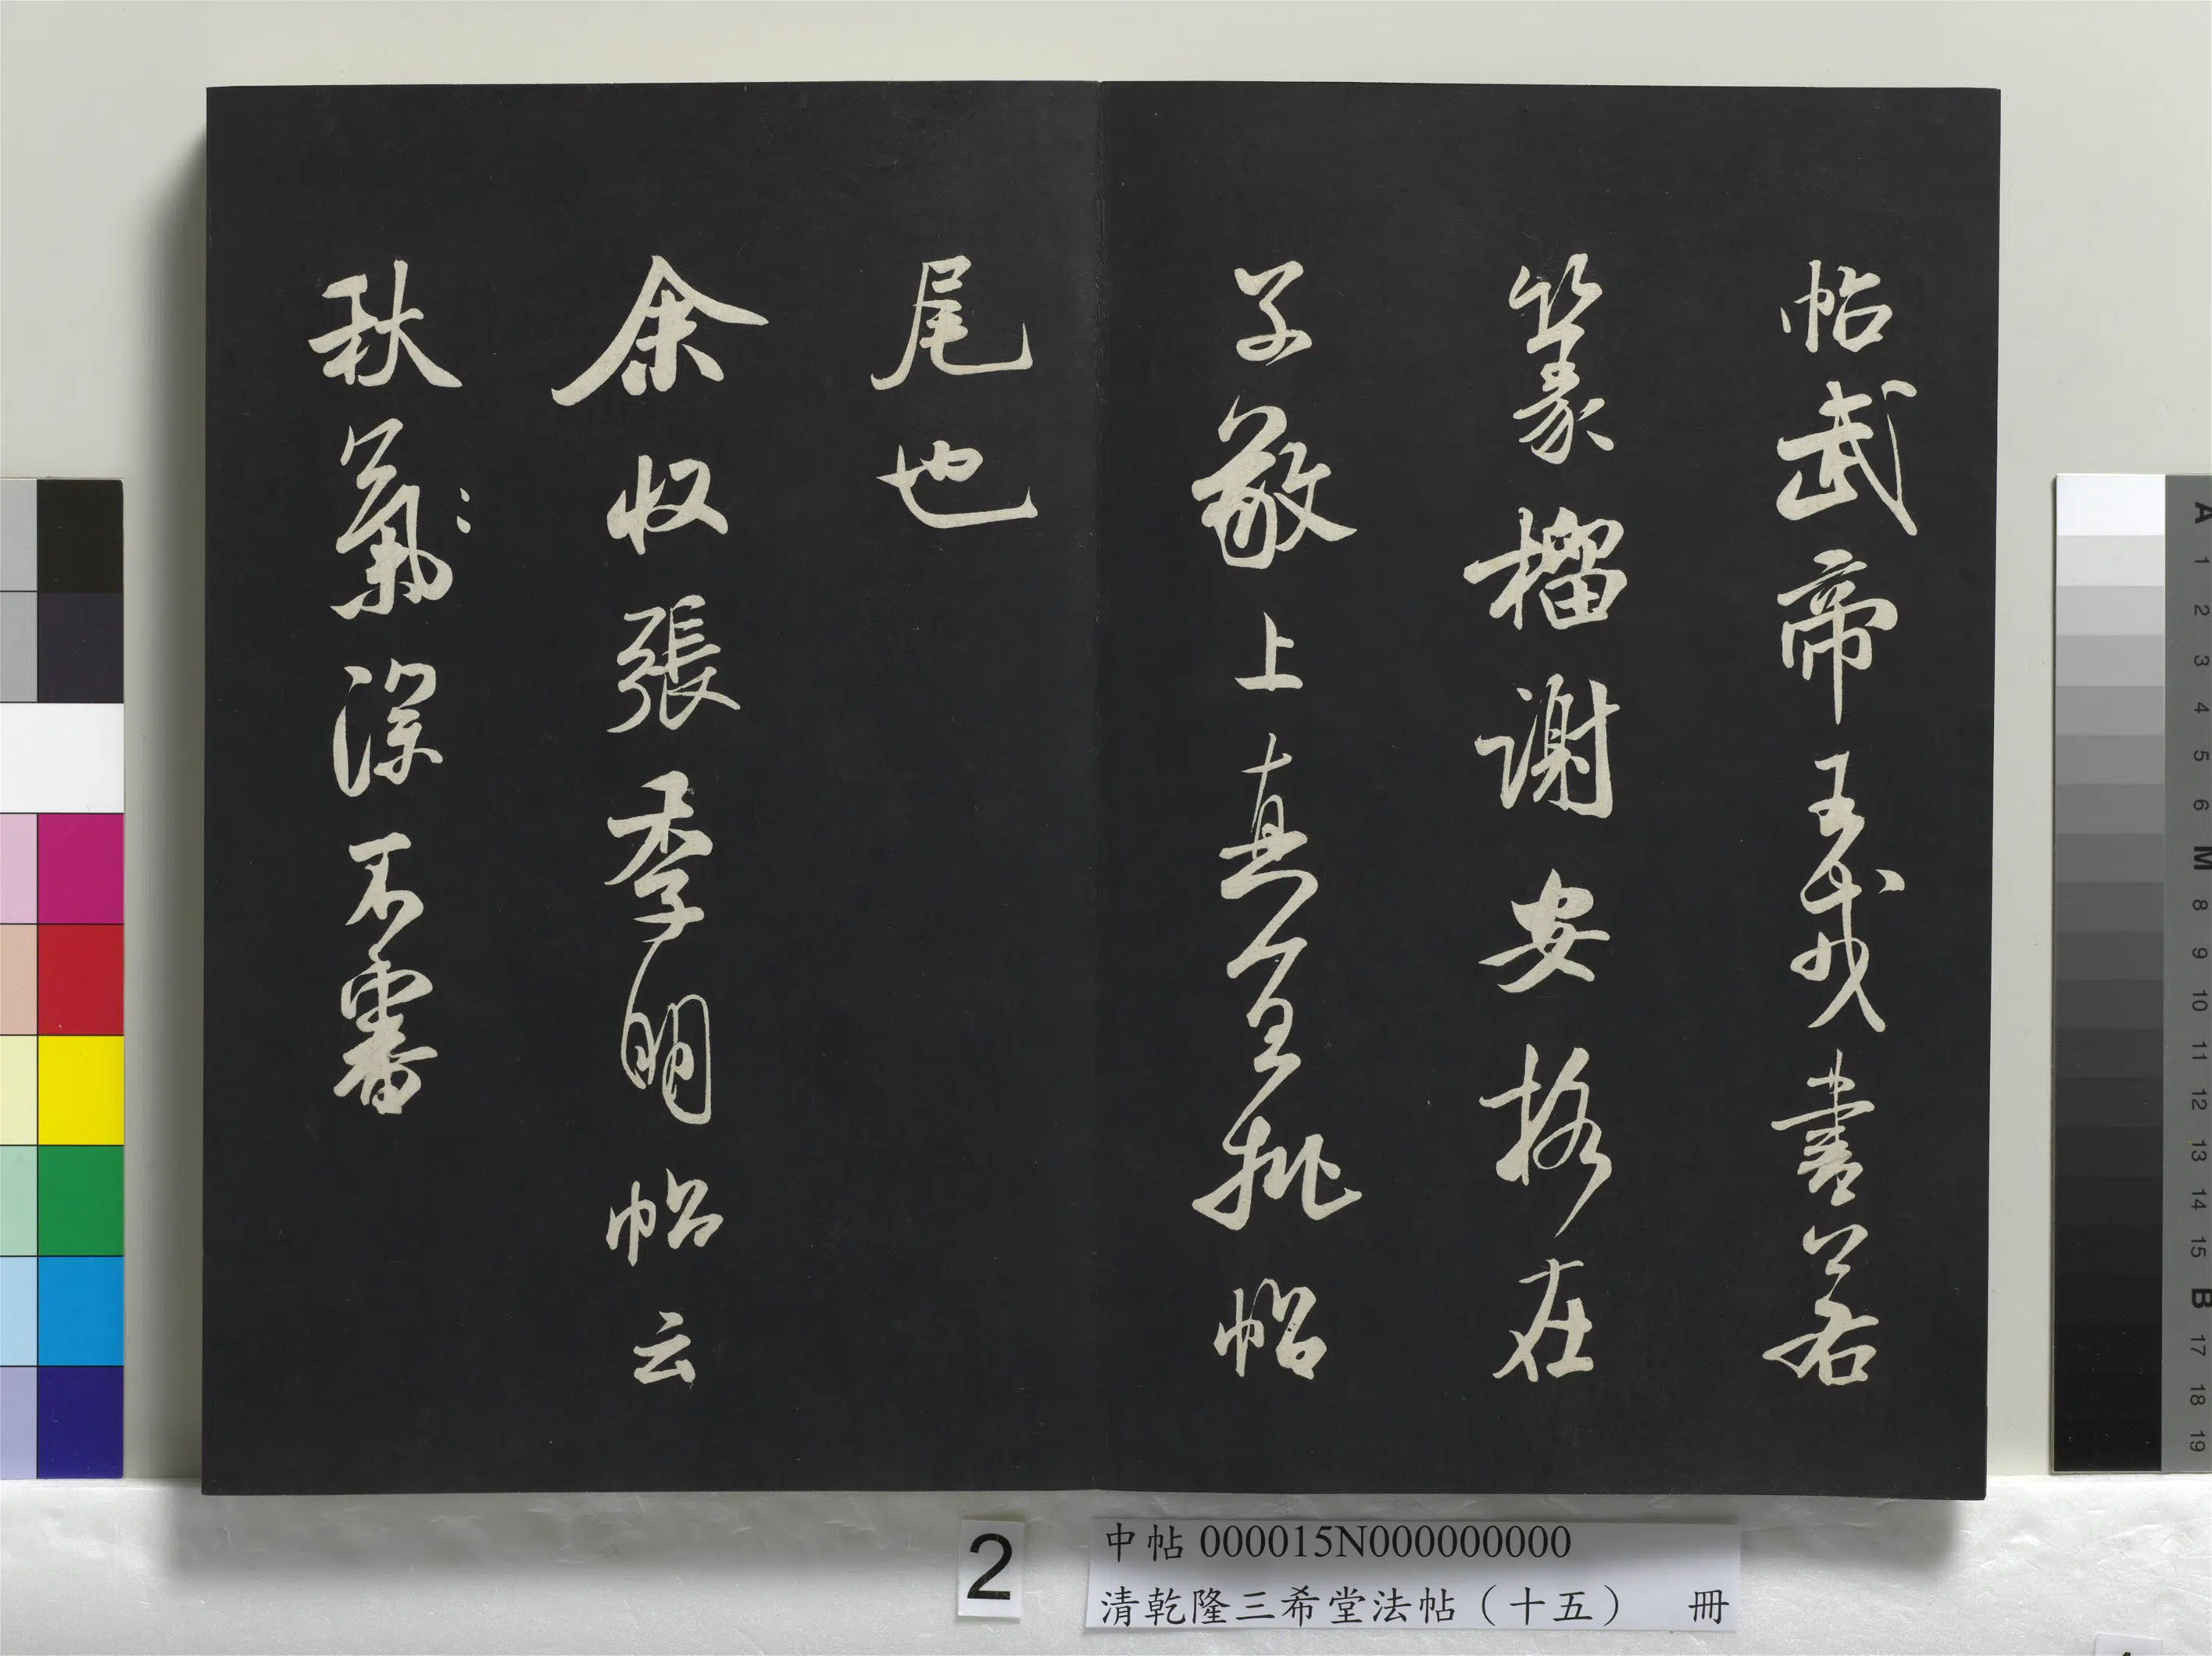 帖武帝王戎書若
篆籀謝安格在
子敬上真宜批帖
尾也
余收張季明帖云
秋氣深不審
2
中帖 000015N000000000
清乾隆三希堂法帖（十五） 冊
A 1 2 3 4 5 6 M 8 9 10 11 12 13 14 15 B 17 18 19